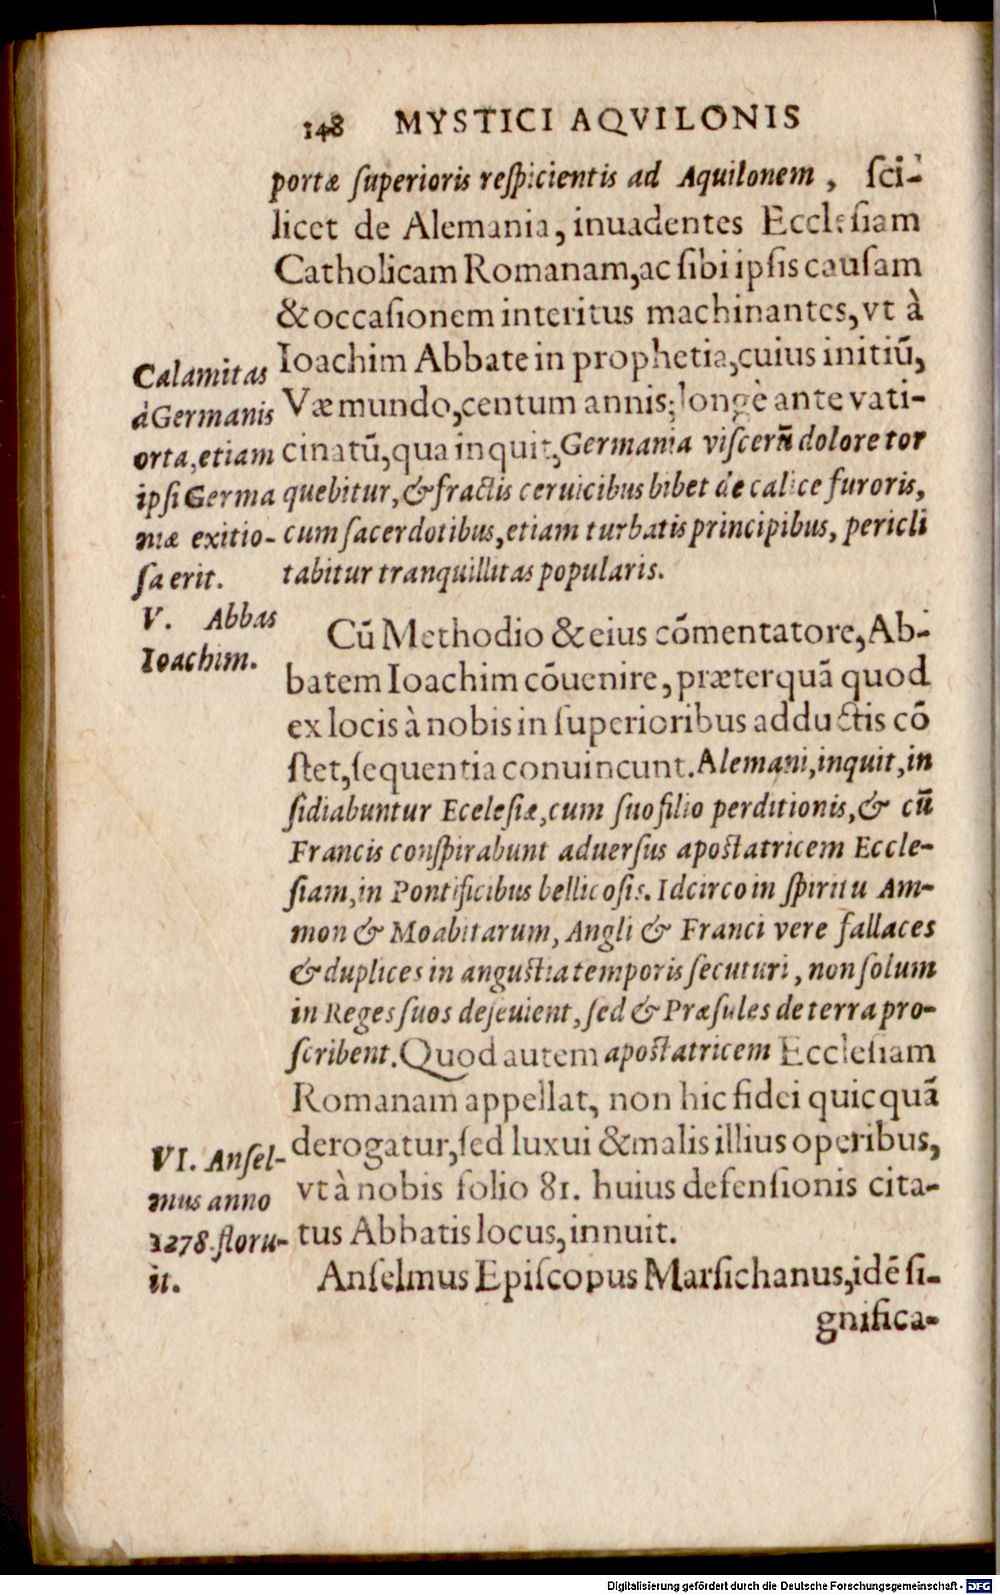 148 MYSTICI AQVILONIS
portæ ſuperioris reſpicientis ad Aquilonem, ſci-
licet de Alemania, inuadentes Eccleſiam
Catholicam Romanam, ac ſibi ipſis cauſam
& occaſionem interitus machinantes, vt à
Ioachim Abbate in prophetia, cuius initiū,
Væ mundo, centum annis longè ante vati-
cinatū, qua inquit, Germania viſcerū dolore tor
quebitur, & fractis ceruicibus bibet de calice furoris,
cum ſacerdotibus, etiam turbatis principibus, pericli
tabitur tranquillitas popularis.
Calamitas
à Germanis
orta, etiam
ipſi Germa
niæ exitio-
ſa erit.
V. Abbas
Ioachim.
Cū Methodio & eius cōmentatore, Ab-
batem Ioachim cōuenire, præterquā quod
ex locis à nobis in ſuperioribus adductis cō
ſtet, ſequentia conuincunt. Alemani, inquit, in
ſidiabuntur Eceleſiæ, cum ſuo filio perditionis, & cū
Francis conſpirabunt aduerſus apoſtatricem Eccle-
ſiam, in Pontificibus bellicoſis. Idcirco in ſpiritu Am-
mon & Moabitarum, Angli & Franci vere fallaces
& duplices in anguſtia temporis ſecuturi, non ſolum
in Reges ſuos deſeuient, ſed & Præſules de terra pro-
ſcribent. Quod autem apoſtatricem Eccleſiam
Romanam appellat, non hic fidei quicquā
derogatur, ſed luxui & malis illius operibus,
vt à nobis folio 81. huius defenſionis cita-
tus Abbatis locus, innuit.
VI. Anſel-
mus anno
1278. floru-
it.
Anſelmus Epiſcopus Marſichanus, idē ſi-
gnifica-
Digitalisierung gefördert durch die Deutsche Forschungsgemeinschaft - DFG